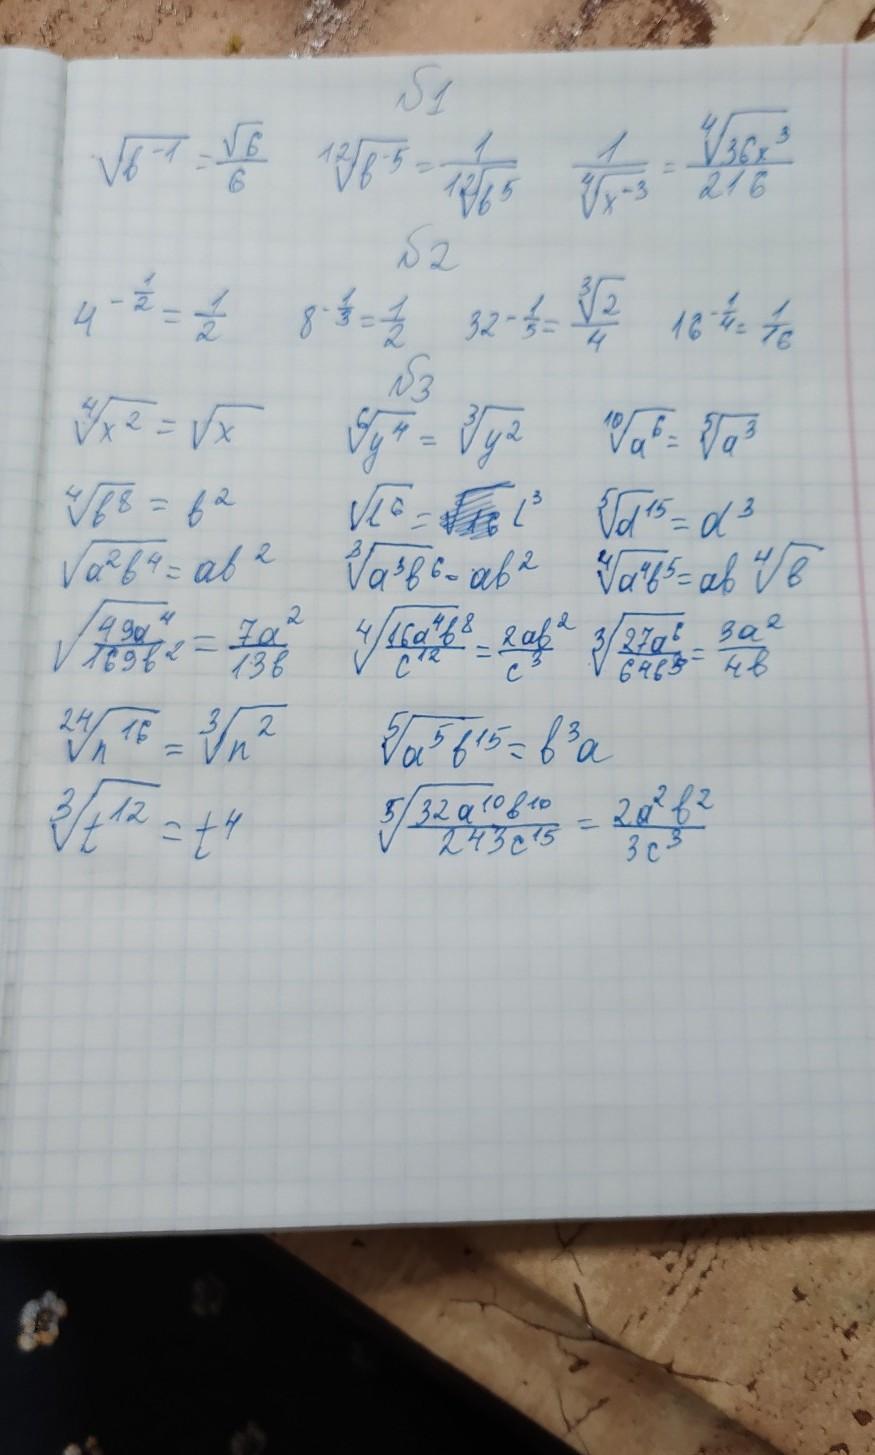 №1
√b⁻¹ = √6/6  ¹²√b⁻⁵ = 1/¹²√b⁵  1/⁴√x⁻³ = ⁴√36x³/216
№2
4^(-1/2) = 1/2  8^(-1/3) = 1/2  32^(-1/5) = ³√2/4  16^(-1/4) = 1/16
№3
⁴√x² = √x  ⁶√y⁴ = ³√y²  ¹⁰√a⁶ = ⁵√a³
⁴√b⁸ = b²  √l⁶ = l³  ⁵√d¹⁵ = d³
√a²b⁴ = ab²  ³√a³b⁶ = ab²  ⁴√a⁴b⁵ = ab ⁴√b
√49a⁴/169b² = 7a²/13b  ⁴√16a⁴b⁸/c¹² = 2ab²/c³  ³√27a⁶/64b³ = 3a²/4b
²⁴√n¹⁶ = ³√n²  ⁵√a⁵b¹⁵ = b³a
³√t¹² = t⁴  ⁵√32a¹⁰b¹⁰/243c¹⁵ = 2a²b²/3c³